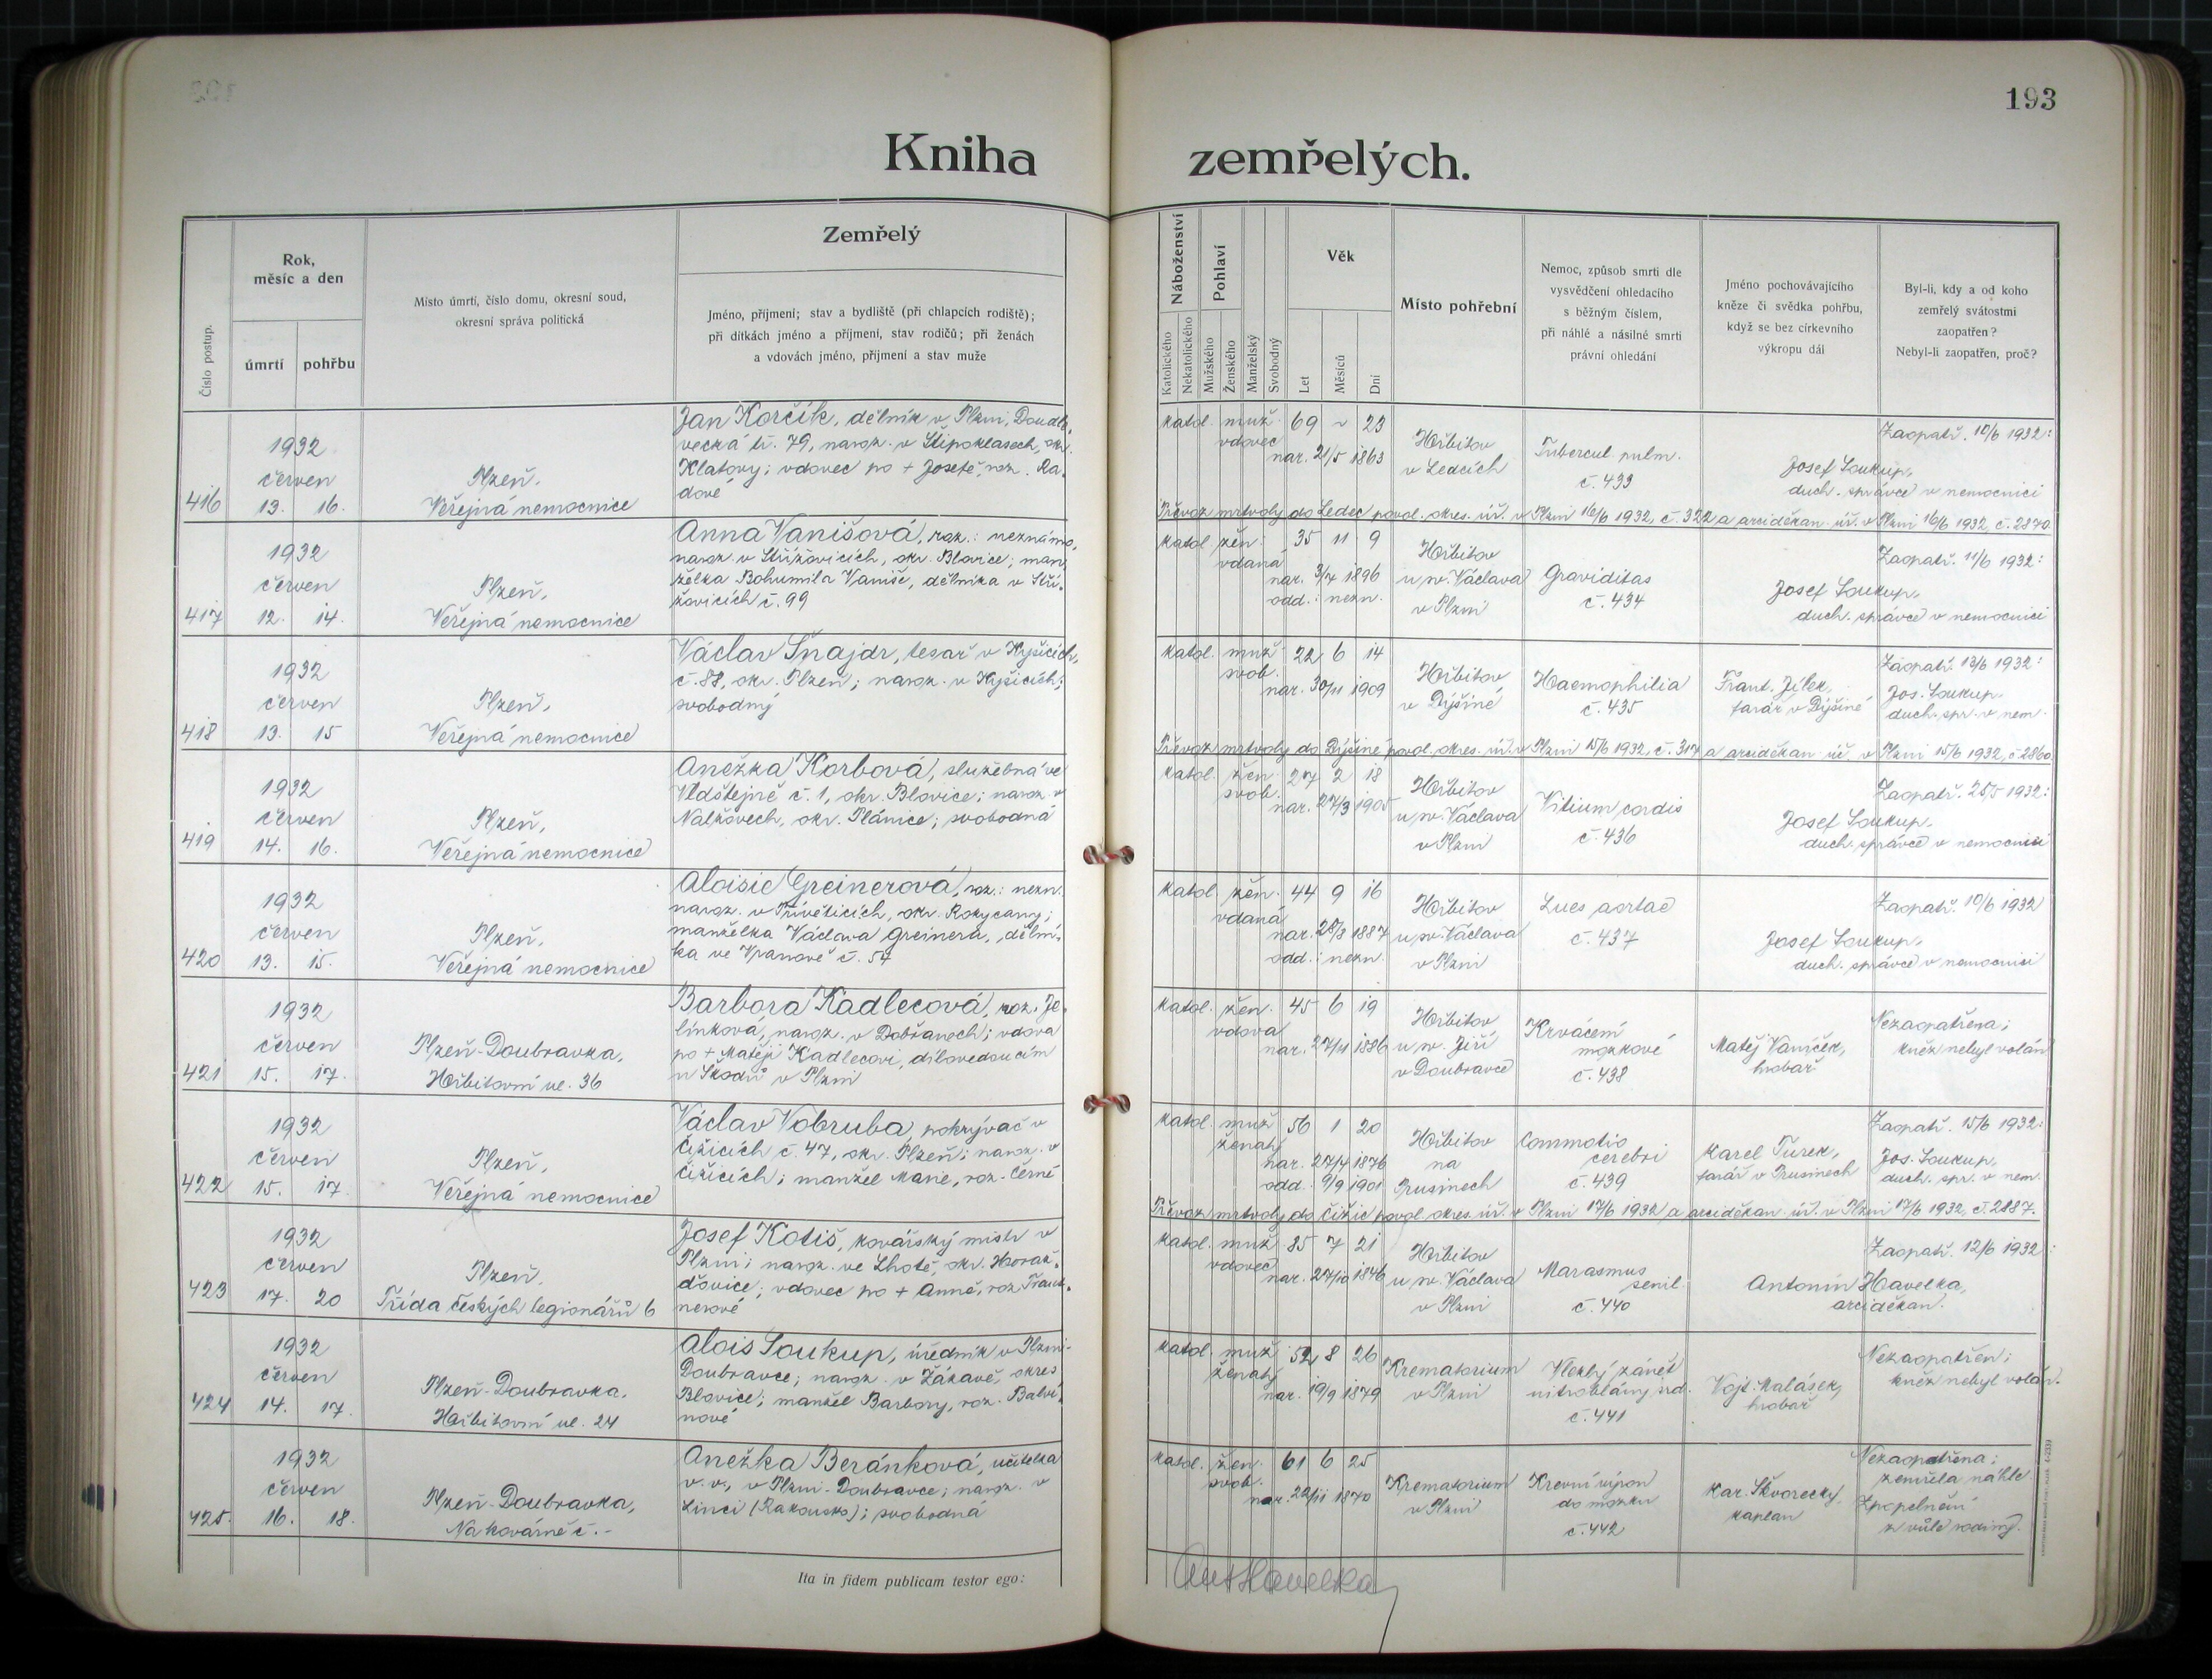 193
Kniha zemřelých.
Číslo postup.
Rok,
měsíc a den
úmrtí
pohřbu
Místo úmrtí, číslo domu, okresní soud,
okresní správa politická
Zemřelý
Jméno, příjmení; stav a bydliště (při chlapcích rodiště);
při dítkách jméno a příjmení, stav rodičů; při ženách
a vdovách jméno, příjmení a stav muže
Náboženství
Katolického
Nekatolického
Pohlaví
Mužského
Ženského
Manželský
Svobodný
Věk
Let
Měsíců
Dní
Místo pohřební
Nemoc, způsob smrti dle
vysvědčení ohledacího
s běžným číslem,
při náhlé a násilné smrti
právní ohledání
Jméno pochovávajícího
kněze či svědka pohřbu,
když se bez církevního
výkropu dál
Byl-li, kdy a od koho
zemřelý svátostmi
zaopatřen?
Nebyl-li zaopatřen, proč?
416
1932
červen
13. 16.
Plzeň,
Veřejná nemocnice
Jan Korčík, dělník v Plzni, Doudle-
vecká tř. 79, naroz. v Štipoklasech, okr.
Klatovy; vdovec po + Josefě, roz. Ra-
dové
katol. muž. 69 ~ 23
vdovec
nar. 21/5 1863
Hřbitov
v Ledcích
Tubercul. pulm.
č. 433
Josef Soukup,
duch. správce v nemocnici
Zaopatř. 10/6 1932:
Převoz mrtvoly do Ledec povol. okres. úř. v Plzni 16/6 1932, č. 322 a arciděkan. úř. v Plzni 16/6 1932, č. 2870.
417
1932
červen
12. 14.
Plzeň,
Veřejná nemocnice
Anna Vanišová, roz.: neznámo,
naroz. v Střížovicích, okr. Blovice; man-
želka Bohumila Vaniše, dělníka v Stří-
žovicích č. 99
katol. žen. 35 11 9
vdaná
nar. 3/7 1896
odd.: nezn.
Hřbitov
u sv. Václava
v Plzni
Graviditas
č. 434
Josef Soukup,
duch. správce v nemocnici
Zaopatř. 11/6 1932:
418
1932
červen
13. 15
Plzeň,
Veřejná nemocnice
Václav Šnajdr, tesař v Kyšicích,
č. 88, okr. Plzeň; naroz. v Kyšicích;
svobodný
katol. muž. 22 6 14
svob.
nar. 30/11 1909
Hřbitov
v Dýšině
Haemophilia
č. 435
Frant. Jílek,
farář v Dýšině
Zaopatř. 13/6 1932:
Jos. Soukup,
duch. spr. v nem.
Převoz mrtvoly do Dýšiné povol. okres. úř. v Plzni 15/6 1932, č. 317 a arciděkan. úř. v Plzni 15/6 1932, č. 2860.
419
1932
červen
14. 16.
Plzeň,
Veřejná nemocnice
Anežka Korbová, služebná ve
Vldštejně č. 1, okr. Blovice; naroz. v
Nalžovech, okr. Plánice; svobodná
katol. žen. 27 2 18
svob.
nar. 27/3 1905
Hřbitov
u sv. Václava
v Plzni
Vitium cordis
č. 436
Josef Soukup,
duch. správce v nemocnici
Zaopatř. 25/5 1932:
420
1932
červen
13. 15.
Plzeň,
Veřejná nemocnice
Aloisie Greinerová, roz.: nezn.
naroz. v Přívěticích, okr. Rokycany;
manželka Václava Greinera, dělní-
ka ve Vranově č. 54
katol. žen. 44 9 16
vdaná
nar. 28/8 1887
odd.: nezn.
Hřbitov
u sv. Václava
v Plzni
Lues aortae
č. 437
Josef Soukup,
duch. správce v nemocnici
Zaopatř. 10/6 1932
421
1932
červen
15. 17.
Plzeň-Doubravka,
Hřbitovní ul. 36
Barbora Kadlecová, roz. Je-
línková, naroz. v Dobřanech; vdova
po + Matěji Kadlecovi, dílovedoucím
u Škodů v Plzni
katol. žen. 45 6 19
vdova
nar. 27/11 1886
Hřbitov
u sv. Jiří
v Doubravce
Krvácení
mozkové
č. 438
Matěj Vaníček,
hrobař
Nezaopatřena;
kněz nebyl volán
422
1932
červen
15. 17.
Plzeň,
Veřejná nemocnice
Václav Vobruba, pokrývač v
Čižicích č. 47, okr. Plzeň; naroz. v
Čižicích; manžel Marie, roz. Černé
katol. muž. 56 1 20
ženatý
nar. 27/4 1876
odd. 9/9 1901
Hřbitov
na
Prusinech
Commotio
cerebri
č. 439
Karel Turek,
farář v Prusinech
Zaopatř. 15/6 1932:
Jos. Soukup,
duch. spr. v nem.
Převoz mrtvoly do Čižic povol. okres. úř. v Plzni 17/6 1932 a arciděkan. úř. v Plzni 17/6 1932, č. 2887.
423
1932
červen
17. 20
Plzeň,
Třída českých legionářů 6
Josef Kotiš, kovářský mistr v
Plzni; naroz. ve Lhotě, okr. Horaž-
ďovice; vdovec po + Anně, roz. Traut-
nerové
katol. muž. 85 7 21
vdovec
nar. 27/10 1846
Hřbitov
u sv. Václava
v Plzni
Marasmus
senil.
č. 440
Antonín Havelka,
arciděkan.
Zaopatř. 12/6 1932:
424
1932
červen
14. 17.
Plzeň-Doubravka,
Hřbitovní ul. 24
Alois Soukup, úředník v Plzni-
Doubravce; naroz. v Žákavě, okres
Blovice; manžel Barbory, roz. Balví-
nové
katol. muž 52 8 26
ženatý
nar. 19/9 1879
Krematorium
v Plzni
Vleklý zánět
nitroblány srd.
č. 441
Vojt. Malásek,
hrobař
Nezaopatřen;
kněz nebyl volán.
425.
1932
červen
16. 18.
Plzeň-Doubravka,
Na kovárně č. -
Anežka Beránková, učitelka
v. v., v Plzni-Doubravce; naroz. v
Linci (Rakousko); svobodná
katol. žen. 61 6 25
svob.
nar. 22/11 1870
Krematorium
v Plzni
Krevní výron
do mozku
č. 442
Kar. Škvorecký,
kaplan
Nezaopatřena;
zemřela náhle.
Zpopelnění
z vůle rodiny.
Ita in fidem publicam testor ego:
Ant Havelka